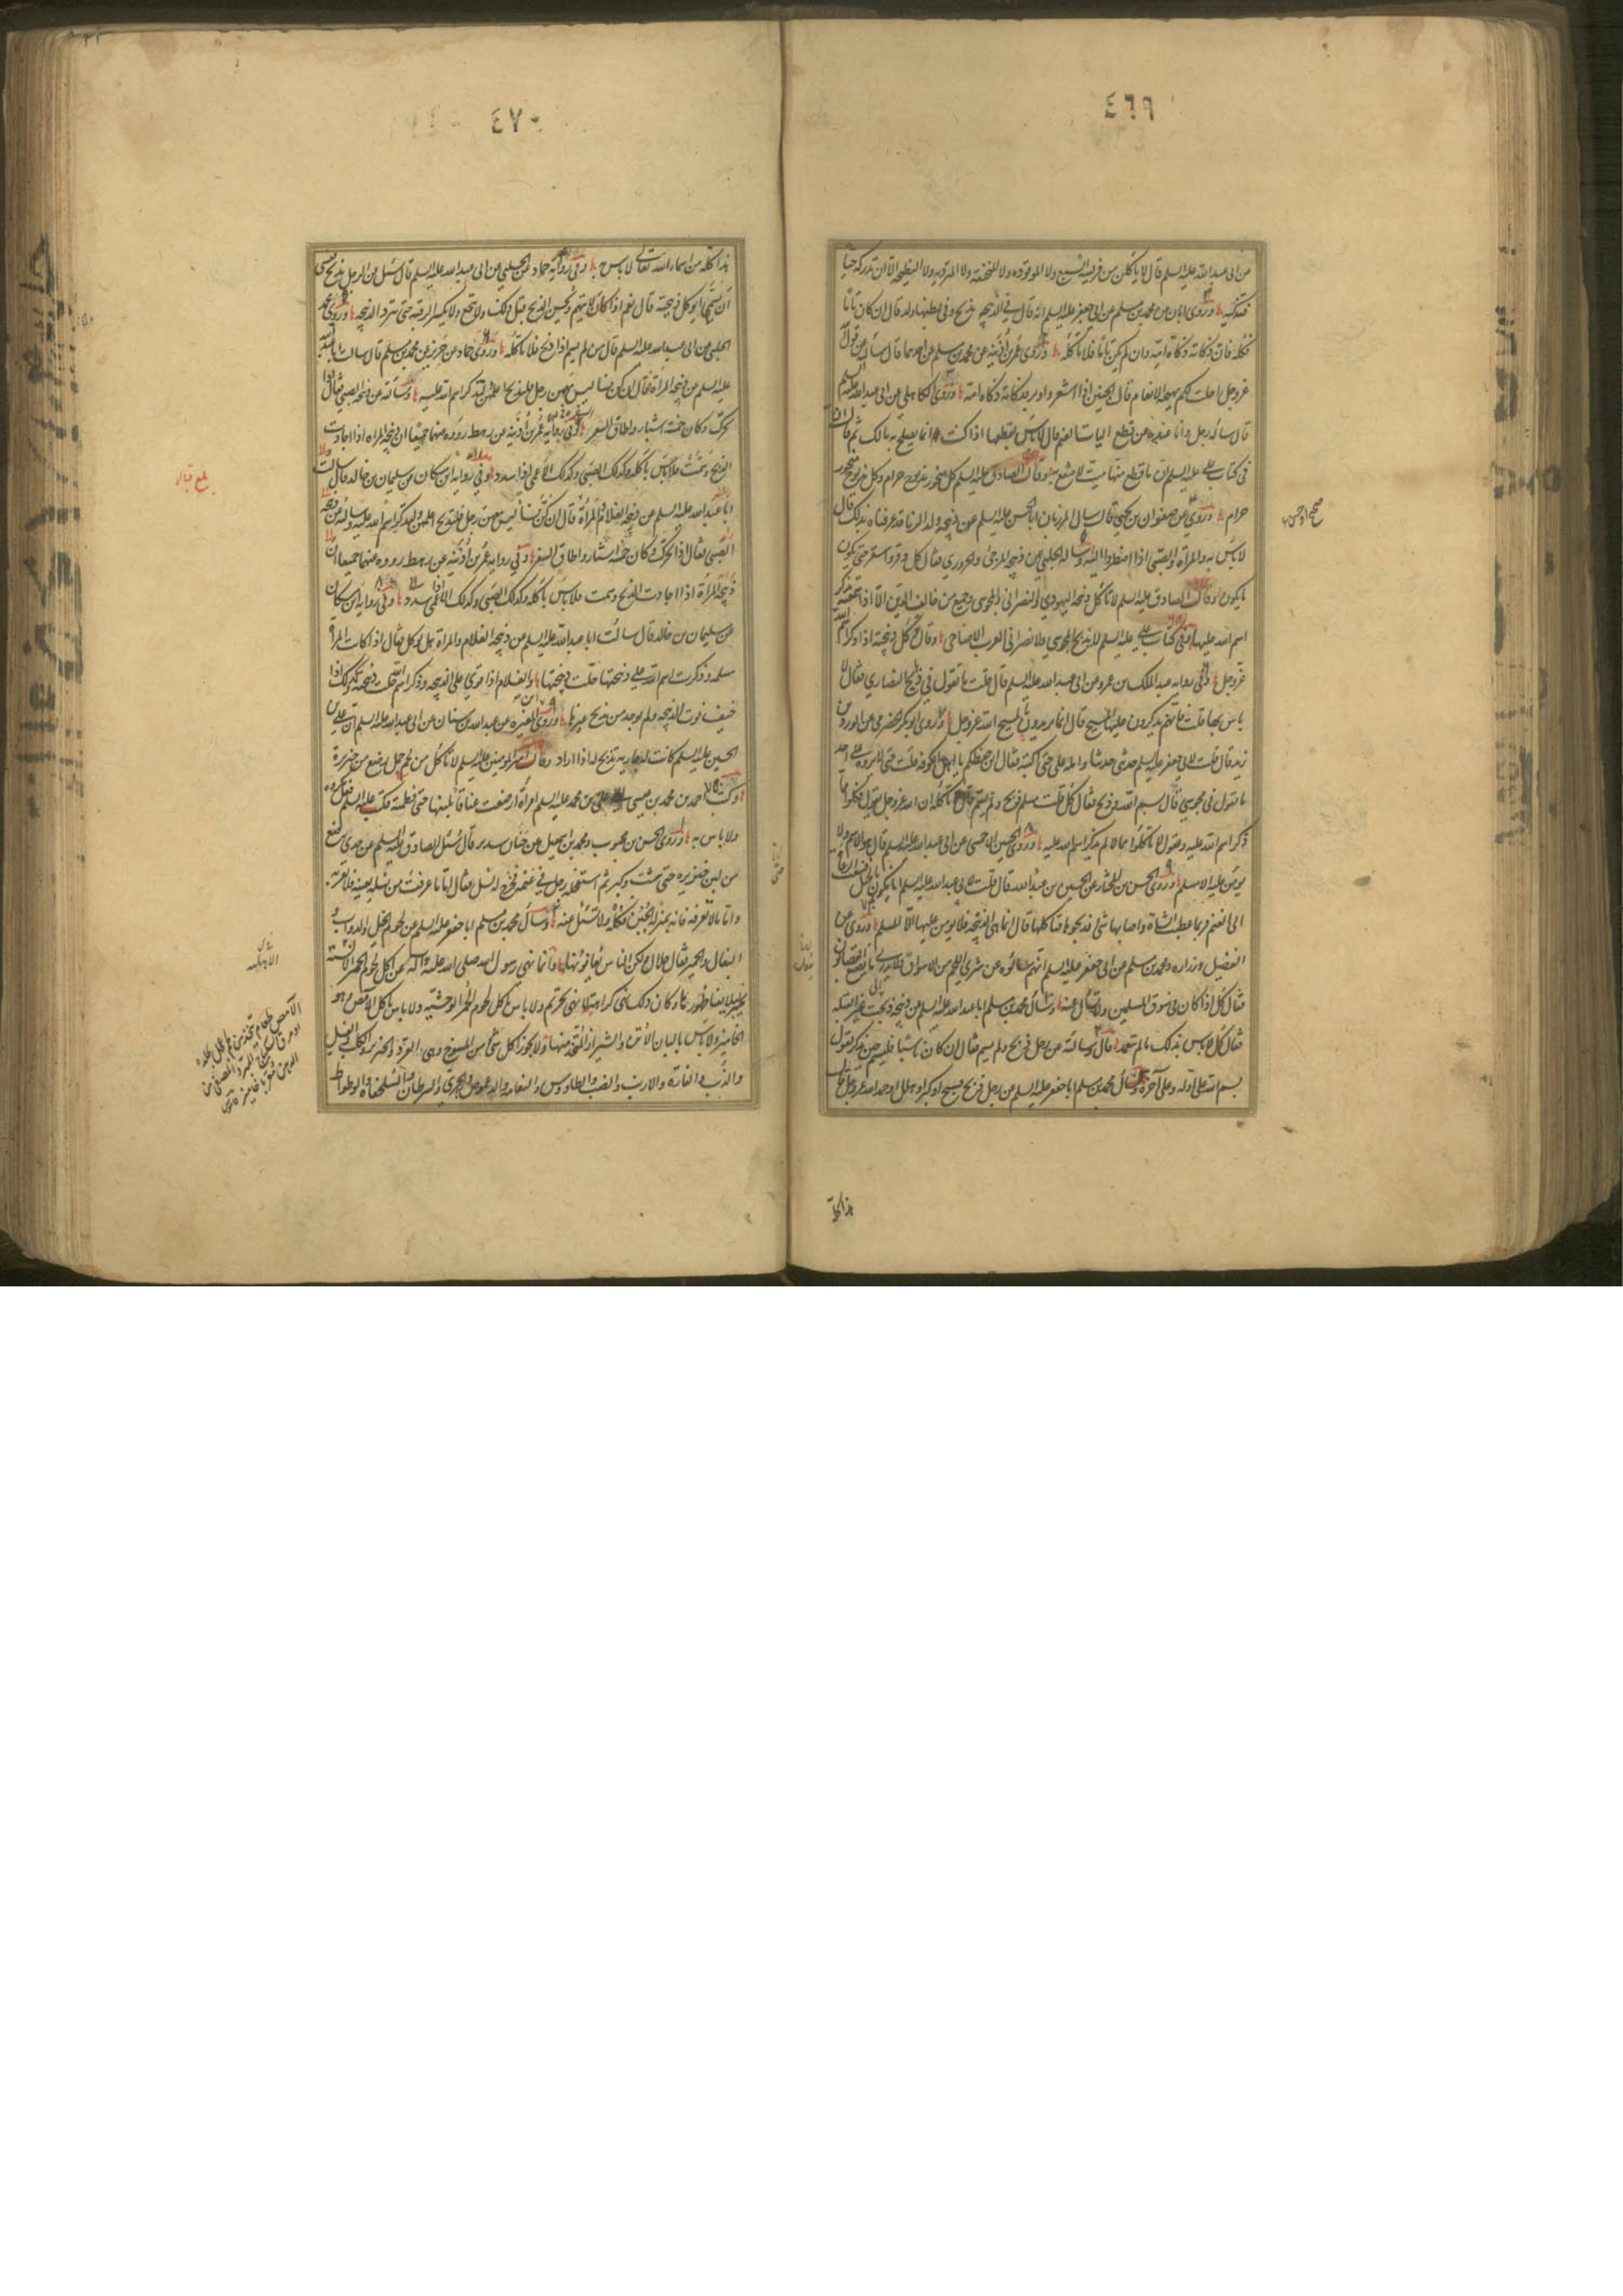 ٤٦٩
عن ابى عبدالله عليه السلم قال لا يأكلن من فريسة السبع ولا الموقوذه ولا المنخنقة ولا المتردية ولا النطيحة الا ان تدركه حيا
فتذكيه وروى ابان عن محمد بن مسلم عن ابى جعفر عليه السلم انه قال في الذبيحه تذبح وفى بطنها ولد قال ان كان تاما
فكله فان ذكاته ذكاة امه وان لم يكن تاما فلا تأكله وروى عمر بن اذينه عن محمد بن مسلم عن احدهما قال سألته عن قول الله
عز وجل احلت لكم بهيمة الانعام قال الجنين اذا اشعر واوبر فذكاته ذكاة امه وروى الكاهلى عن ابى عبد الله عليه السلم
قال سأله رجل وانا عنده عن قطع اليات الغنم قال لا بأس بقطعها اذا كنت انما يصلح به مالك ثم قال ان
فى كتاب على عليه السلم ان ما قطع منها ميت لا ينتفع به وقال الصادق عليه السلم كل منحور مذبوح حرام وكل مذبوح منحور
حرام وروى عن صفوان بن يحيى قال سأل المرزبان ابا الحسن عليه السلم عن ذبيحه ولد الزنا قد عرفناه بذلك قال
لا بأس به والمرأة والصبى اذا اضطروا اليه وساله الحلبى عن ذبيحه المرجئ والحروري فقال كل وقر واستقر حتى يكون
ما يكون وقال الصادق عليه السلم لا تأكل ذبيحه اليهودي والنصرانى والمجوسى وجميع من خالف الدين الا اذا سمعته يذكر
اسم الله عليها وفى كتاب على عليه السلم لا يذبح المجوسي ولا نصرانى العرب الاضاحى وقال تأكل ذبيحته اذا ذكر اسم الله
عز وجل وفى رواية عبد الملك بن عمرو عن ابى عبدالله عليه السلم قال قلت ما تقول في ذبايح النصاري فقال لا
بأس بها قلت فانهم يذكرون عليها المسيح قال انما يريدون بالمسيح الله عز وجل وروى ابو بكر الحضرمى عن الورد بن
زيد قال قلت لابى جعفر عليه السلم حدثنى حديثا وامله على حتى اكتبه فقال اين حفظكم يا اهل الكوفه قلت حتى لا يرده على احد
ما تقول فى مجوسي قال بسم الله وذبح فقال كل قلت مسلم ذبح ولم يسم قال لا تأكله ان الله عز وجل يقول فكلوا مما
ذكر اسم الله عليه ويقول لا تأكلوا مما لم يذكر اسم الله عليه وروى الحسين الاحمسى عن ابى عبدالله عليه السلم قال هو الاسم ولا
يومن عليه الا مسلم وروى الحسن بن المختار عن الحسين بن عبيدالله قال قلت لابى عبدالله عليه السلم انا نكون بالجبل فنبعث الرعاة
الى الغنم فربما عطبت الشاة واصابها شئ فذبحوها فنأكلها قال انما هى الذبيحه فلا يومن عليها الا المسلم وروى عن
الفضيل وزراره ومحمد بن مسلم عن ابى جعفر عليه السلم انهم سألوه عن شرى اللحم من الاسواق ولا يدرى ما يصنع القصابون
فقال كل اذا كان فى سوق المسلمين ولا تسأل عنه وسأل محمد بن مسلم ابا عبد الله عليه السلم عن ذبيحة ذبحت لغير القبلة
فقال كل لا بأس بذلك ما لم يتعمد قال وسألته عن رجل ذبح ولم يسم فقال ان كان ناسيا فليسم حين يذكر يقول
بسم الله على اوله وعلى آخره وسأل محمد بن مسلم ابا جعفر عليه السلم عن رجل ذبح فسبح او كبر او هلل او حمد الله عز وجل قال
هذا كله
٤٧٠
هذا كله من اسماء الله تعالى لا باس به وفى رواية حماد عن الحلبي عن ابى عبد الله عليه السلم قال سئل عن الرجل يذبح فينسى
ان يسمى ايوكل ذبيحته قال نعم اذا كان لا يتهم ويحسن الذبح قبل ذلك ولا ينخع ولا يكسر الرقبه حتى تبرد الذبيحه وروى محمد
الحلبى عن ابى عبدالله عليه السلم قال من لم يسم اذا ذبح فلا تأكله وروى حماد عن حريز عن محمد بن مسلم قال سالت ابا عبد الله
عليه السلم عن ذبيحه المرأة فقال ان كن نساء ليس معهن رجل فلتذبح اعلمهن ولتذكر اسم الله عليه وسألته عن ذبيحة الصبى فقال اذا
تحرك وكان خمسة اشبار واطاق الشفره وفى رواية عمر بن اذينه عن رهط رووه عنهما جميعا ان ذبيحه المراه اذا اجادت
الذبح وسمت فلا بأس بأكله وكذلك الصبى وكذلك الاعمى اذا سدد وفي رواية ابن مسكان عن سليمان بن خالد قال سالت
ابا عبد الله عليه السلم عن ذبيحه الغلام والمرأة قال ان كن نساء ليس معهن رجل فلتذبح اعلمهن ولتذكر اسم الله عليه وسألته عن ذبيحه
الصبى فقال اذا تحرك وكان خمسة اشبار واطاق الشفره وفي رواية عمر بن اذينه عن رهط رووه عنهما جميعا ان
ذبيحة المرأة اذا اجادت الذبح وسمت فلا بأس بأكله وكذلك الصبى وكذلك الاعمى اذا سدد وفي رواية ابن مسكان
عن سليمان بن خالد قال سألت ابا عبدالله عليه السلم عن ذبيحه الغلام والمراة هل توكل فقال اذا كانت المرأة
مسلمه وذكرت اسم الله على ذبيحتها حلت ذبيحتها والغلام اذا قوي على الذبيحه وذكر اسم الله حلت ذبيحته وذلك اذا
خيف فوت الذبيحه ولم يوجد من يذبح غيرها وروى ابن المغيره عن عبدالله بن سنان عن ابى عبدالله عليه السلم ان على بن
الحسين عليه السلم كانت له جاريه تذبح له اذا اراد وقال امير المومنين عليه السلم لا تأكل من لحم حمل رضع من خنزيرة
وكتب احمد بن محمد بن عيسى الى على بن محمد عليه السلم امرأة ارضعت عناقا بلبنها حتى فطمته فكتب عليه السلم فعل مكروه
ولا باس به وروى الحسن بن محبوب ومحمد بن اسمعيل عن حنان بن سدير قال سئل الصادق عليه السلم عن جدى رضع
من لبن خنزيره حتى شب وكبر ثم استفحله رجل في غنمه فخرج له نسل فقال اما ما عرفت من نسله بعينه فلا تقربه
واما ما لا تعرفه فانه بمنزلة الجبن فكله ولا تسئل عنه وسأل محمد بن مسلم ابا جعفر عليه السلم عن لحوم الخيل والدواب و
البغال والحمير فقال حلال ولكن الناس يعافونها وانما نهى رسول الله صلى الله عليه وآله عن اكل لحوم الحمر الانسية
بخيبر لئلا يفنا ظهورها وكان ذلك نهى كراهة لا نهى تحريم ولا باس بأكل لحوم الحمر الوحشيه ولا باس بأكل الآمص وهو
اليحامير ولا بأس بالبان الاتن والشيراز المتخذ منها ولا يجوز اكل شئ من المسوخ وهى القرد والخنزير والكلب والفيل
والذئب والفارة والارنب والضب والطاووس والنعامه والدعموص والجرى والسرطان والسلحفاة والوطواط
بلغ قبالا